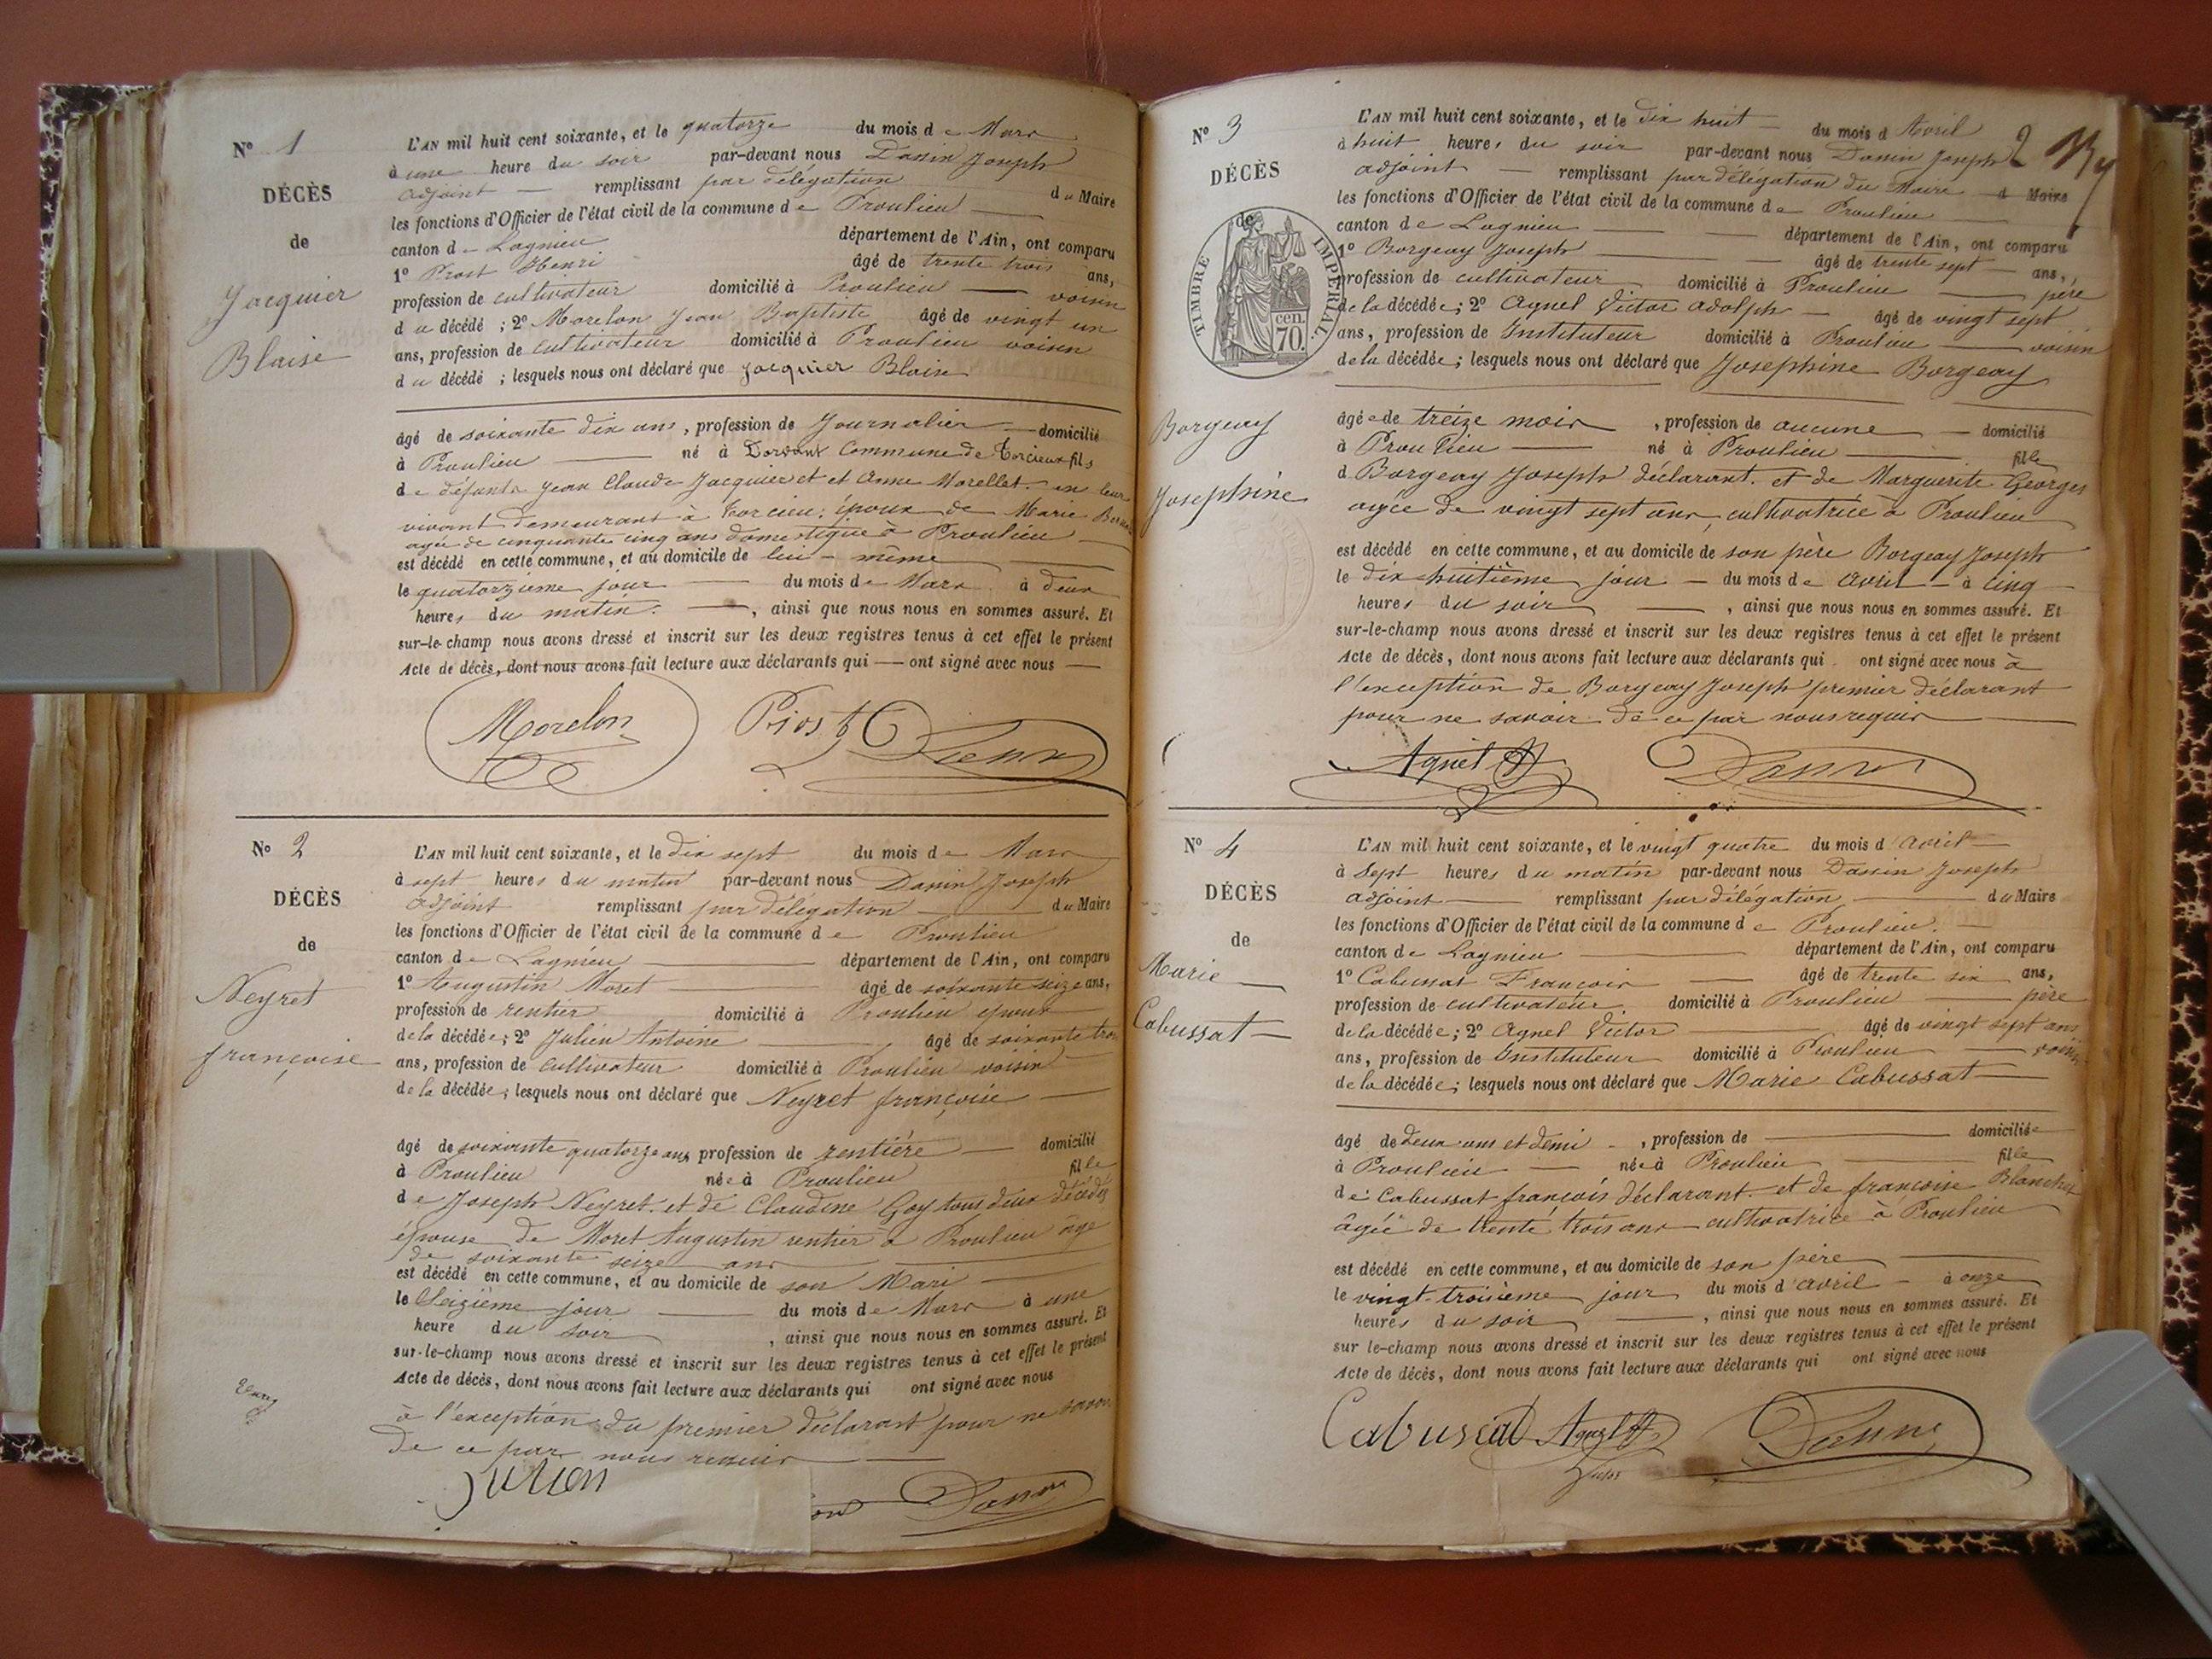 N° 1
DÉCÈS
de
Jacquier
Blaise
L'AN mil huit cent soixante, et le quatorze du mois de Mars
à une heure du soir par-devant nous Dassin Joseph
adjoint remplissant par délégation du Maire
les fonctions d'Officier de l'état civil de la commune de Proulieu
canton de Lagnieu département de l'Ain, ont comparu
1° Prost Henri âgé de trente trois ans,
profession de cultivateur domicilié à Proulieu voisin
du décédé ; 2° Morelon Jean Baptiste âgé de vingt un
ans, profession de cultivateur domicilié à Proulieu voisin
du décédé ; lesquels nous ont déclaré que Jacquier Blaise
âgé de soixante dix ans, profession de Journalier domicilié
à Proulieu né à Dorvant Commune de Torcieux fils
de défunts Jean Claude Jacquier et et Anne Morellet en leur
vivant demeurant à Torcieu, époux de Marie
agée de cinquante cinq ans domestique à Proulieu
est décédé en cette commune, et au domicile de lui-même
le quatorzième jour du mois de Mars à deux
heures du matin, ainsi que nous nous en sommes assuré. Et
sur-le-champ nous avons dressé et inscrit sur les deux registres tenus à cet effet le présent
Acte de décès, dont nous avons fait lecture aux déclarants qui ont signé avec nous
Morelon Prost
N° 2
DÉCÈS
de
Neyret
françoise
L'AN mil huit cent soixante, et le dix sept du mois de Mars
à sept heures du matin par-devant nous Dassin Joseph
adjoint remplissant par délégation du Maire
les fonctions d'Officier de l'état civil de la commune de Proulieu
canton de Lagnieu département de l'Ain, ont comparu
1° Augustin Moret âgé de soixante seize ans,
profession de rentier domicilié à Proulieu époux
de la décédée; 2° Julien Antoine âgé de soixante trois
ans, profession de cultivateur domicilié à Proulieu voisin
de la décédée; lesquels nous ont déclaré que Neyret françoise
âgé de soixante quatorze ans profession de rentière domicilié
à Proulieu née à Proulieu fille
de Joseph Neyret et de Claudine Goy tous deux décédés
épouse de Moret Augustin rentier à Proulieu âgé
de soixante seize ans
est décédé en cette commune, et au domicile de son Mari
le Seizième jour du mois de Mars à une
heure du soir, ainsi que nous nous en sommes assuré. Et
sur-le-champ nous avons dressé et inscrit sur les deux registres tenus à cet effet le présent
Acte de décès, dont nous avons fait lecture aux déclarants qui ont signé avec nous
à l'exception du premier déclarant pour ne savoir
de ce par nous requis
Julien
N° 3
DÉCÈS
de
TIMBRE IMPÉRIAL
70 cen.
Borgeay
Josephine
L'AN mil huit cent soixante, et le dix huit du mois d Avril
à huit heures du soir par-devant nous Dassin Joseph
adjoint remplissant par délégation du Maire d Maire
les fonctions d'Officier de l'état civil de la commune de Proulieu
canton de Lagnieu département de l'Ain, ont comparu
1° Borgeay Joseph âgé de trente sept ans,
profession de cultivateur domicilié à Proulieu père
de la décédée; 2° Agnel Victor Adolph âgé de vingt sept
ans, profession de Instituteur domicilié à Proulieu voisin
de la décédée; lesquels nous ont déclaré que Josephine Borgeay
âgée de treize mois, profession de aucune domicilié
à Proulieu né à Proulieu fille
d Borgeay Joseph déclarant. et de Marguerite Georges
agée de vingt sept ans, cultivatrice à Proulieu
est décédé en cette commune, et au domicile de son père Borgeay Joseph
le dix-huitième jour du mois de avril à cinq
heures du soir, ainsi que nous nous en sommes assuré. Et
sur-le-champ nous avons dressé et inscrit sur les deux registres tenus à cet effet le présent
Acte de décès, dont nous avons fait lecture aux déclarants qui ont signé avec nous à
l'exception de Borgeay Joseph premier déclarant
pour ne savoir de ce par nous requis
Agnel
N° 4
DÉCÈS
de
Marie
Cabussat
L'AN mil huit cent soixante, et le vingt quatre du mois d'avril
à Sept heures du matin par-devant nous Dassin Joseph
adjoint remplissant par délégation du Maire
les fonctions d'Officier de l'état civil de la commune de Proulieu.
canton de Lagnieu département de l'Ain, ont comparu
1° Cabussat François âgé de trente six ans,
profession de cultivateur domicilié à Proulieu père
de la décédée; 2° Agnel Victor âgé de vingt sept ans
ans, profession de Instituteur domicilié à Proulieu voisin
de la décédée; lesquels nous ont déclaré que Marie Cabussat
âgé de deux ans et demi, profession de domiciliée
à Proulieu née à Proulieu fille
de Cabussat françois déclarant. et de françoise
âgée de trente trois ans cultivatrice à Proulieu
est décédé en cette commune, et au domicile de son père
le vingt-troisième jour du mois d'avril à onze
heures du soir, ainsi que nous nous en sommes assuré. Et
sur le-champ nous avons dressé et inscrit sur les deux registres tenus à cet effet le présent
Acte de décès, dont nous avons fait lecture aux déclarants qui ont signé avec nous
Cabussat Agnel